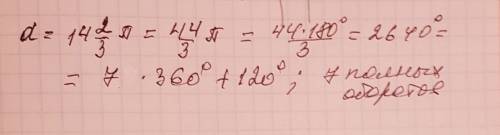 α = 14 2/3 π = 44/3 π = 44·180°/3 = 2640° =
= 7 · 360° + 120° ; 7 полных
оборотов